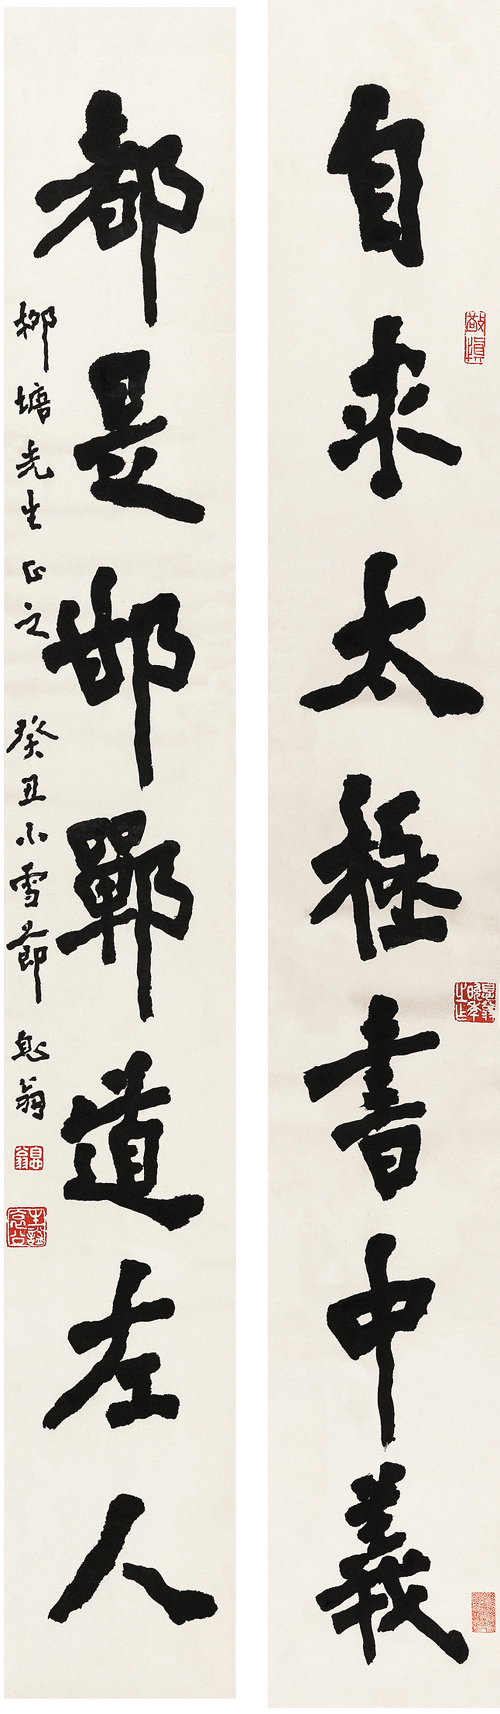 自求太極書中義
都是邯鄲道左人
柳塘先生正之 癸丑小雪節 翁